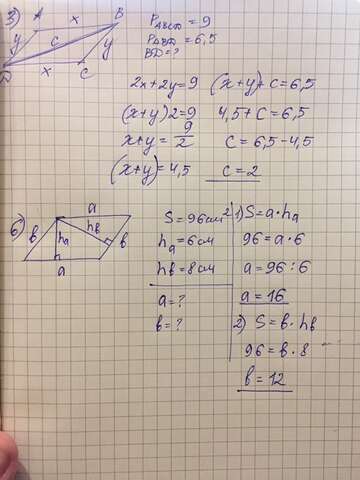 3) A x B
y c y
D x C
P_ABCD = 9
P_ABD = 6,5
BD = ?
2x+2y=9 (x+y)+c=6,5
(x+y)2=9 4,5+c=6,5
x+y= 9/2 c=6,5-4,5
(x+y)=4,5 c=2
6) a
в ha hв в
a
S=96см²
ha=6см
hв=8см
a=?
в=?
1) S=a·ha
96=a·6
a=96:6
a=16
2) S=в·hв
96=в·8
в=12